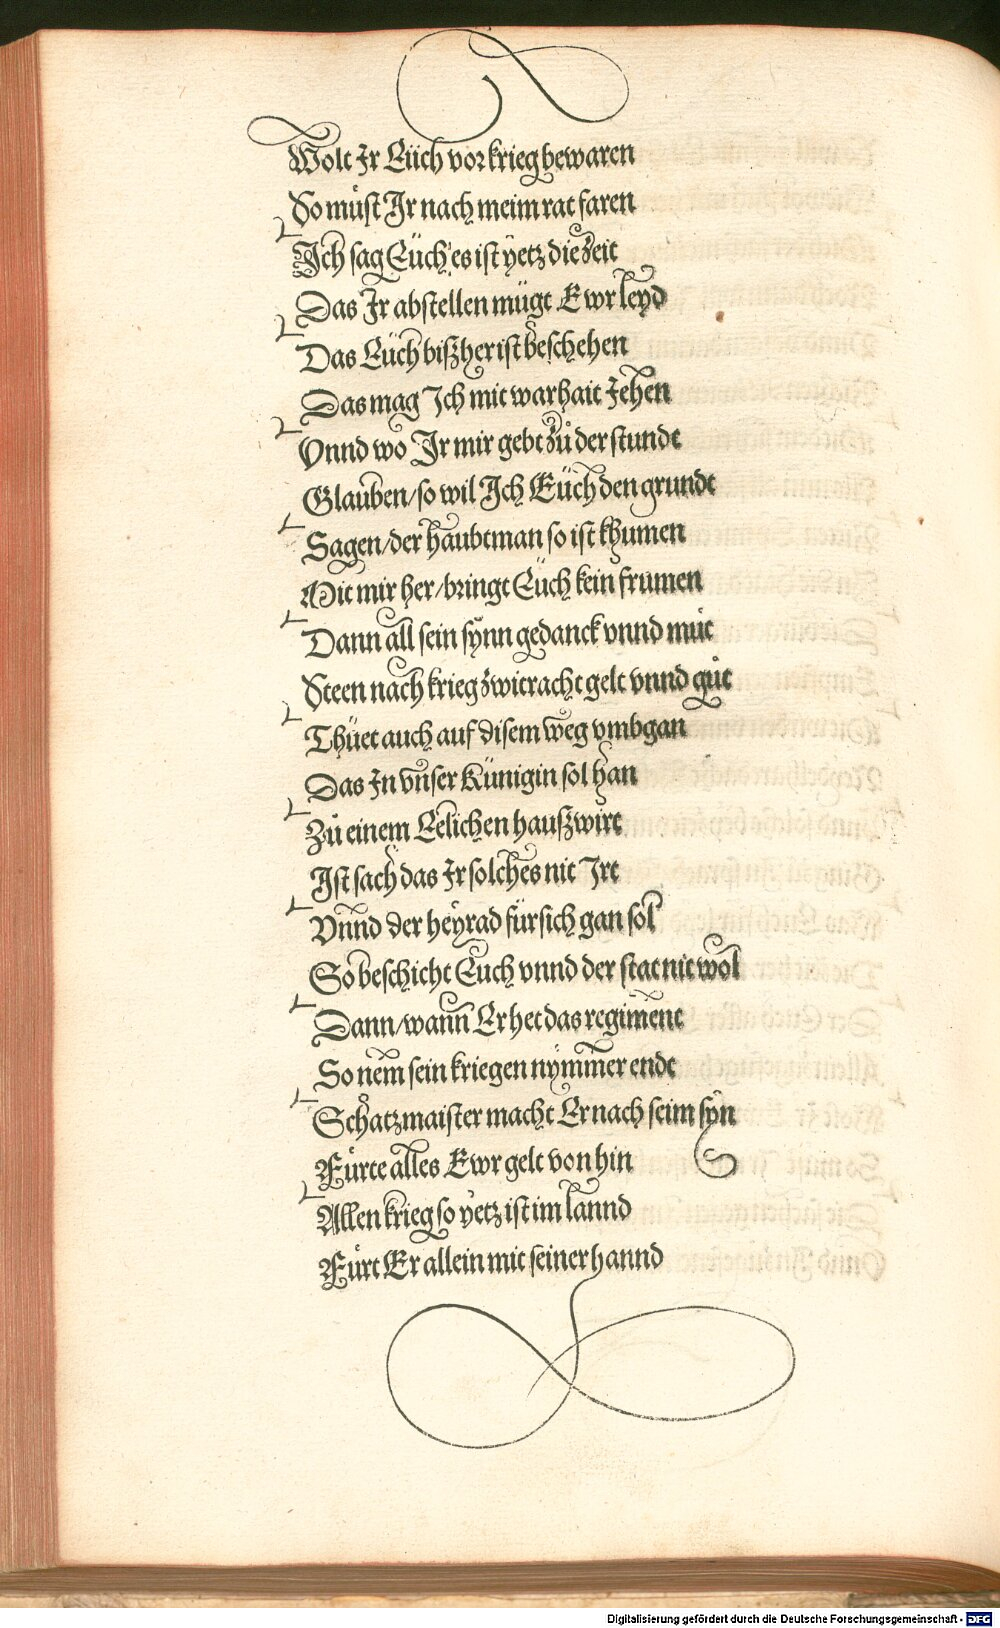 Wolt Ir Eüch vor krieg bewaren
So müst Ir nach meim rat faren
Ich sag Eüch es ist yetz die zeit
Das Ir abstellen mügt Ewr leyd
Das Eüch biszher ist beschehen
Das mag Ich mit warhait Jehen
Vnnd wo Ir mir gebt zů der stundt
Glauben / so wil Ich Eüch den grundt
Sagen / der haubtman so ist khumen
Mit mir her / bringt Eüch kein frumen
Dann all sein synn gedanck vnnd můt
Steen nach krieg zwitracht gelt vnnd gůt
Thüet auch auf disem weg vmbgan
Das In vnser Künigin sol han
Zů einem Eelichen hauszwirt
Ist sach das Ir solches nit Irt
Vnnd der heyrad für sich gan sol
So beschicht Euch vnnd der stat nit wol
Dann / wann Er het das regiment
So nem sein kriegen nymmer endt
Schatzmaister macht Er nach seim syn
Fürte alles Ewr gelt von hin
Allen krieg so yetz ist im lannd
Fürt Er allein mit seiner hannd
Digitalisierung gefördert durch die Deutsche Forschungsgemeinschaft - DFG